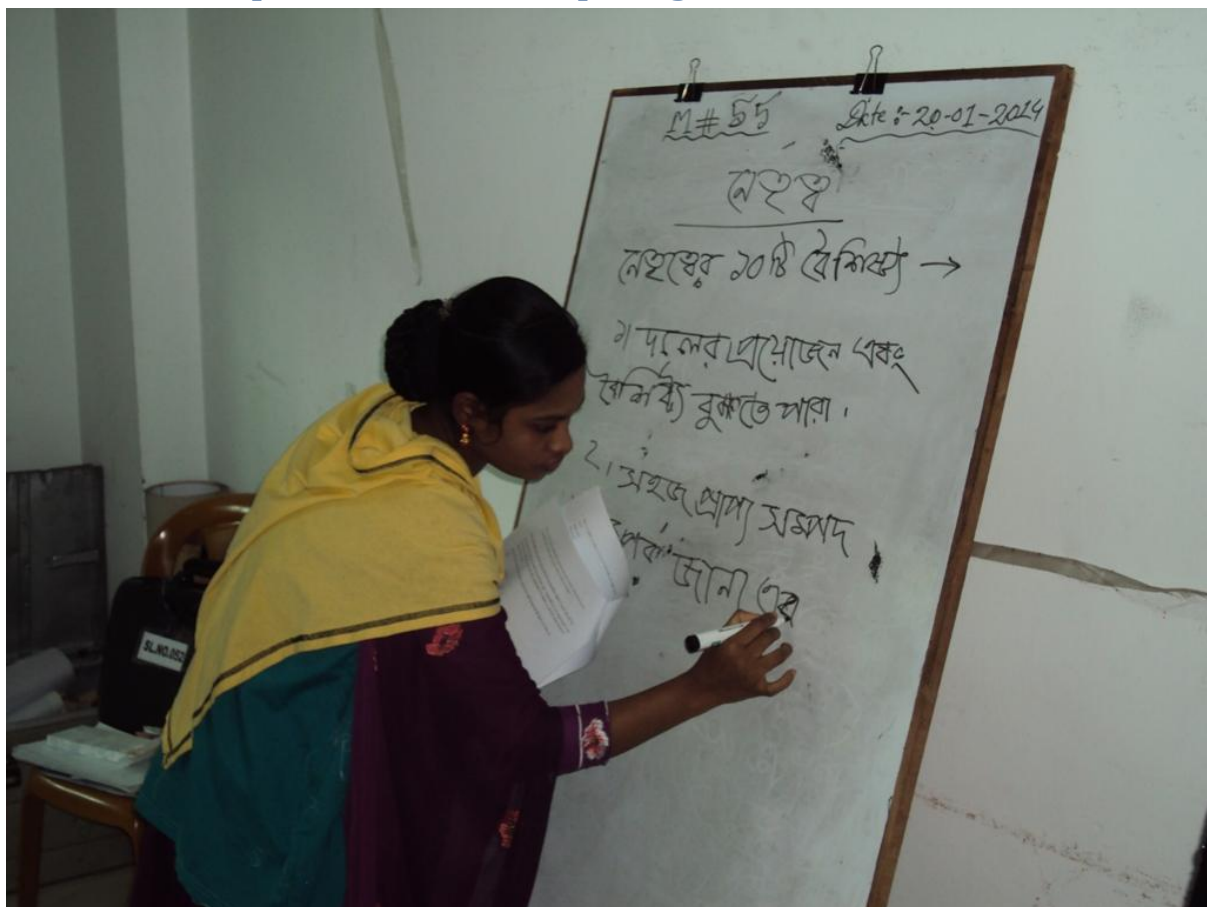 M # ১১ Date :- 20-01-2014
নেতৃত্ব
নেতৃত্বের ১০টি বৈশিষ্ট্য →
১। দলের প্রয়োজন এবং
বৈশিষ্ট্য বুঝতে পারা।
২। সহজ প্রাপ্য সম্পদ
জানা এব
SL.NO.052